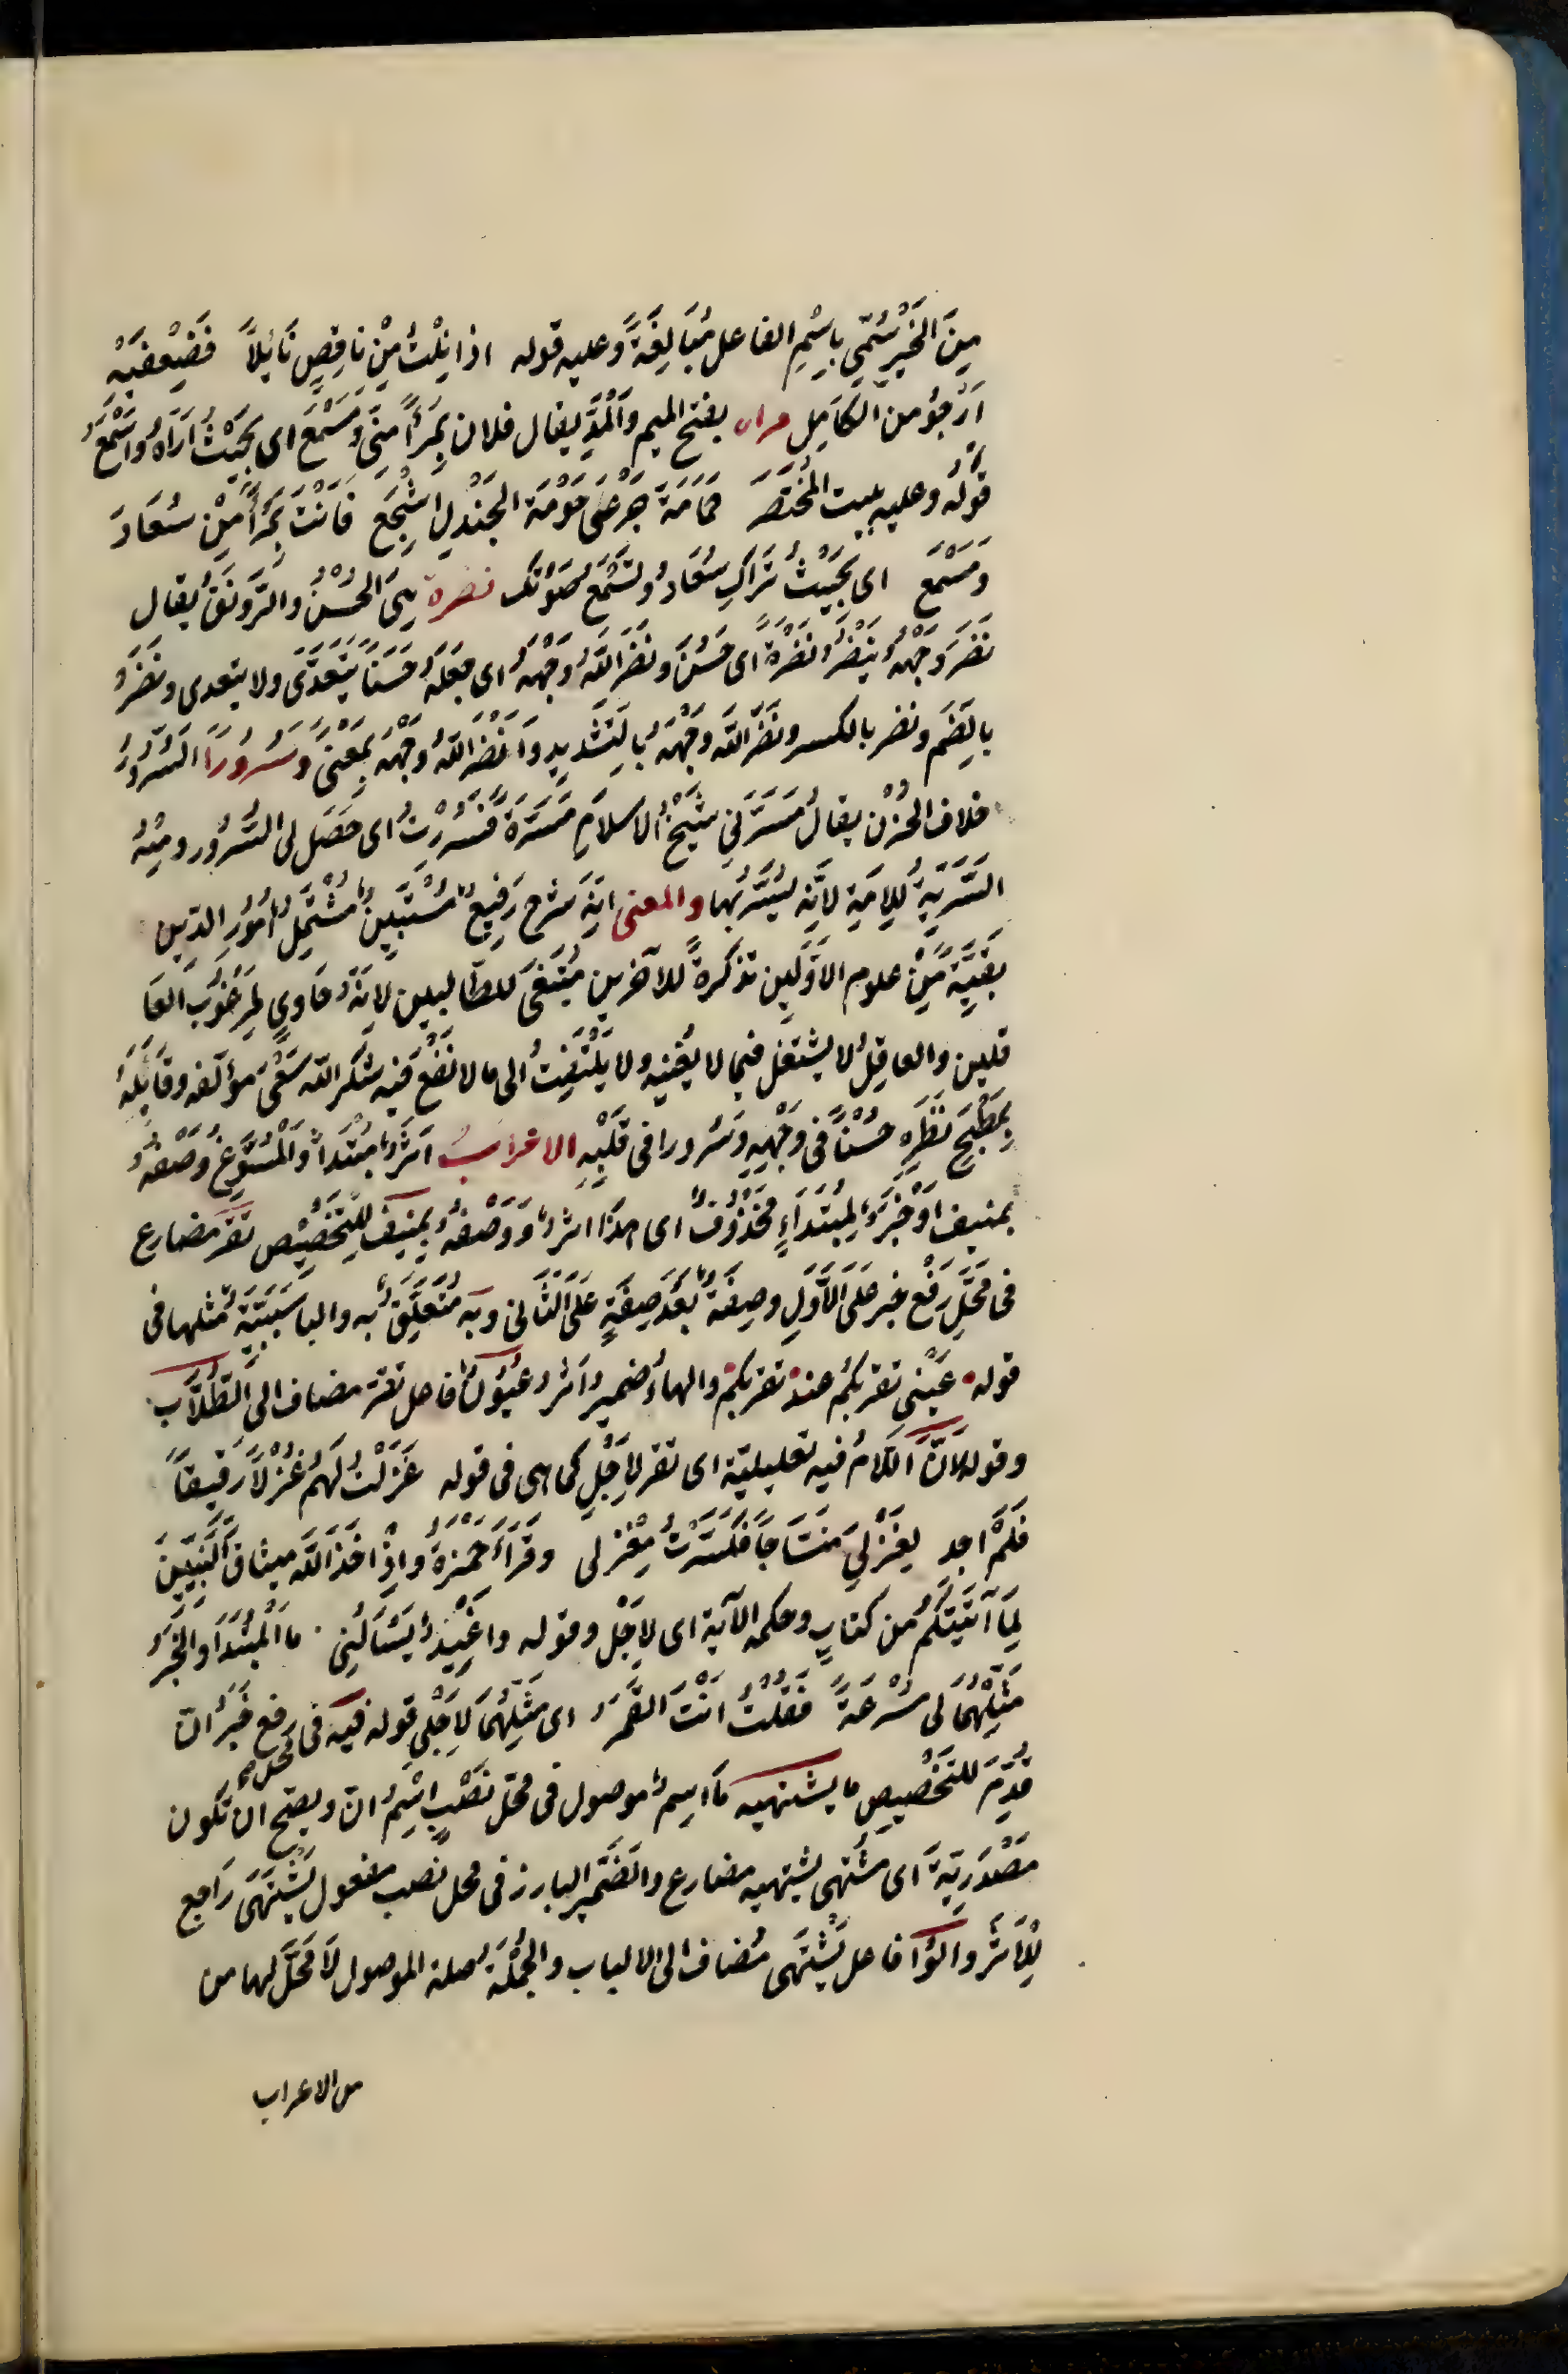 مِنَ الْخَيْرِ سُمِّيَ بِاسْمِ الفاعل مُبَالَغَةً وعليه قوله اذا نِلْتُ مِنْ ناقصٍ نَائِلاً فَضِعْفَيْهِ
اَرْجُو من الكَامِلِ مراء بفتح الميم وَالْمَدِّ يقال فلان بِمَرْأً مِنِّى وَمَسْمَعٍ اى بِحَيْثُ اَرَاهُ وَاَسْمَعُ
قَوْلَهُ وعليه بيت المُخْتَصَرِ حَمَامَةَ جَرْعَى حَوْمَةِ الْجَنْدَلِ اسْجَعِ فَاَنْتِ بِمَرْأً مِنْ سُعَادَ
وَمَسْمَعِ اى بِحَيْثُ تَرَاكِ سُعَادُ وتَسْمَعُ صَوْتَك نضرة هِىَ الْحُسْنُ وَالرَّوْنَقُ يقال
نَضَرَ وَجْهُهُ يَنْضُرُ نَضْرَةً اى حَسُنَ ونَضَرَ اللّٰهُ وَجْهَهُ اى جَعَلَهُ حَسَنًا يَتَعَدَّى ولا يتعدى ونَضُرَ
بالضَّم ونضر بالكسر ونَضَّرَ اللّٰه وَجْهَهُ بِالتَّشْدِيدِ وَاَنْضَرَ اللّٰهُ وَجْهَهُ بِمَعْنًى وَسُرُورًا السُّرُورُ
خلاف الحُزْنِ يقال سَرَّنِى شَيْخُ الاسلامِ مَسَرَّةً فَسُرِرْتُ اى حَصَلَ لى السُّرُورُ ومِنْهُ
السُّرِّيَّةُ لِلاَمَةِ لِاَنَّهُ يُسَرُّ بِهَا والمعنى اَنَّهُ شرح رَفِيعٌ مُسْتَبِينٌ مُشْتَمِلٌ اُمُورَ الدّين
بَقِيَّةٌ مِنْ علوم الاَوَّلِينَ تذكرةً للآخرين مُبْتَغًى للطَّالبين لِاَنَّهُ حَاوِى لِمَرْغُوبِ العَا
قلين والعاقِلُ لا يشتغل فيما لا يُغْنِيهِ ولا يَلْتَفِتُ الى ما لا نَفْعَ فيه شكر اللّٰه سَعْىَ مؤلّفه وقَابَلَهُ
بِمَطْمَحِ نَظَرِهِ حُسْنًا فى وَجْهِهِ وَسُرورا فى قَلْبِهِ الاعْرَابُ اَثَرٌ مُبْتَدَأٌ وَالْمُسَوِّغُ وَصْفُهُ
بمنيف اَوْ خَبَرٌ لِمُبْتَدَاءٍ مَحْذُوفٍ اى هذَا اثرٌ وَوَصْفُهُ بِمُنِيفٍ لِلتَّخْصِيصِ تقر مضارع
فى مَحَلِّ رَفْعٍ خبر عَلَى الاَوَّلِ وصِفَةٌ بَعْدَ صِفَةٍ عَلَى الثَّانى وبه مُتَعَلِّقٌ به والبا سَبَبِيَّةٌ مثلها فى
قوله عَيْنِى تقر بكُم عند تقرّبكم والهاءُ ضمير اَثرٍ وعُيُونُ فاعل تقرّ مضاف الى الطُّلاَّبِ
وقوله لانّ اللاّمُ فيه تعليليّة اى تقر لِاَجْلِ كما هى فى قوله غَزَلْتُ لَهُمْ غَزْلاً رَقِيقًا
فَلَمْ اَجِدْ لِغَزْلِىَ نَسَّاجًا فَكَسَّرْتُ مِغْزلى وقَرَأَ حَمْزَةُ وَاِذْ اخَذَ اللّٰه ميثاق النَّبِيِّينَ
لِمَا آتَيْتُكُمْ من كتابٍ وحكمة الآية اى لِاَجْلِ وقوله واغْيَدٍ يَسْأَلُنِى ما الْمُبْتَدَا والخَبَرُ
مَثِّلْهُمَا لى سُرْعَةً فَقُلْتُ اَنْتَ القَمَرُ اى مَثِّلْهُمَا لِاَجْلِى قوله فيه فى محلّ رفع خَبَرُ اَنّ
قُدِّمَ للتَّخْصِيصِ ما يشتهيه مَا اسمٌ موصول فى محلّ نَصْبٍ اِسْمُ انّ ويصحّ ان تكون
مَصْدَرِيَّةً اى مُشْتَهى يشتهيه مضارع والضَّمير البارز فى محلّ نصب مفعول يَشْتَهِى رَاجع
لِلْاَثَرِ واُلُوا فاعل يَشْتَهِى مُضاف الى الالباب والجُمْلَةُ صلة الموصول لاَ مَحَلَّ لها من
من الاعراب